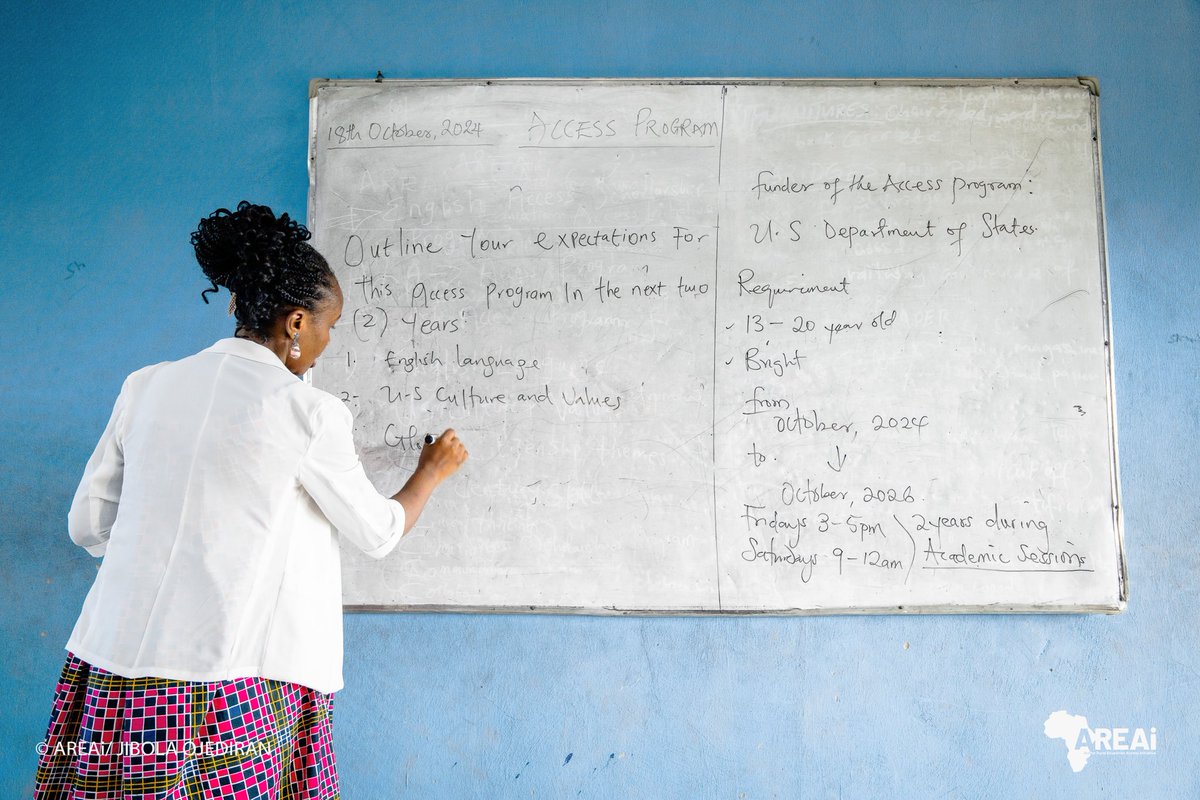 18th October, 2024 ACCESS PROGRAM
Outline Your expectations For
this access program In the next two
(2) Years?
1. English language
2- U-S Culture and Values
Gl
Funder of the Access program:
U.S Department of States.
Requirement
13-20 year old
Bright
from
October, 2024
to
October, 2026.
Fridays 3-5pm 2years during
Saturdays 9-12am Academic Sessions
© AREAi/ JIBOLA OJEDIRAN
AREAi